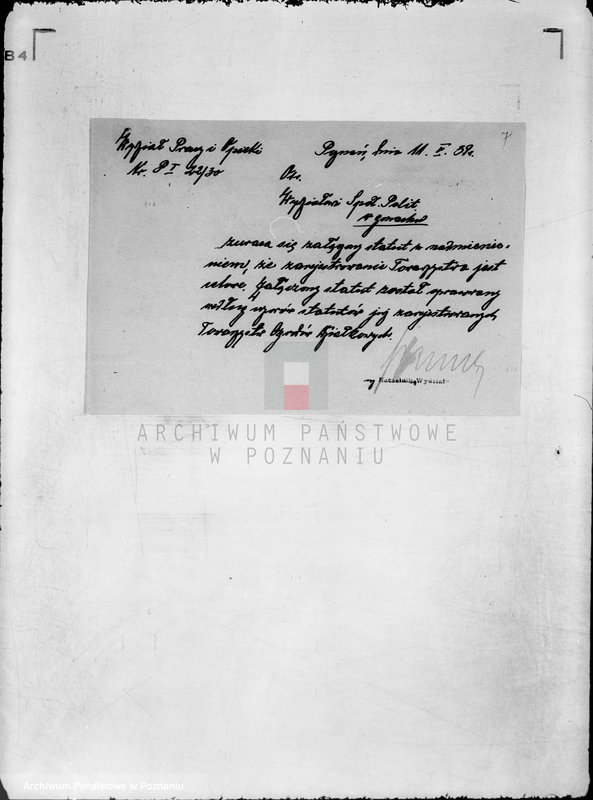 B4
7
Wydział Pracy i Opieki
Poznań, dnia 11. V. 38r.
Nr. P I 22/30
Do
Wydziałowi Społ. Polit
w gmachu
zwraca się załączony statut z nadmienie-
niem, że zarejestrowanie Towarzystwa jest
celowe. Załączony statut został opracowany
według wzorów statutów już zarejestrowanych
Towarzystw Ogrodów Działkowych.
Naczelnik Wydziału
ARCHIWUM PAŃSTWOWE
W POZNANIU
Archiwum Państwowe w Poznaniu